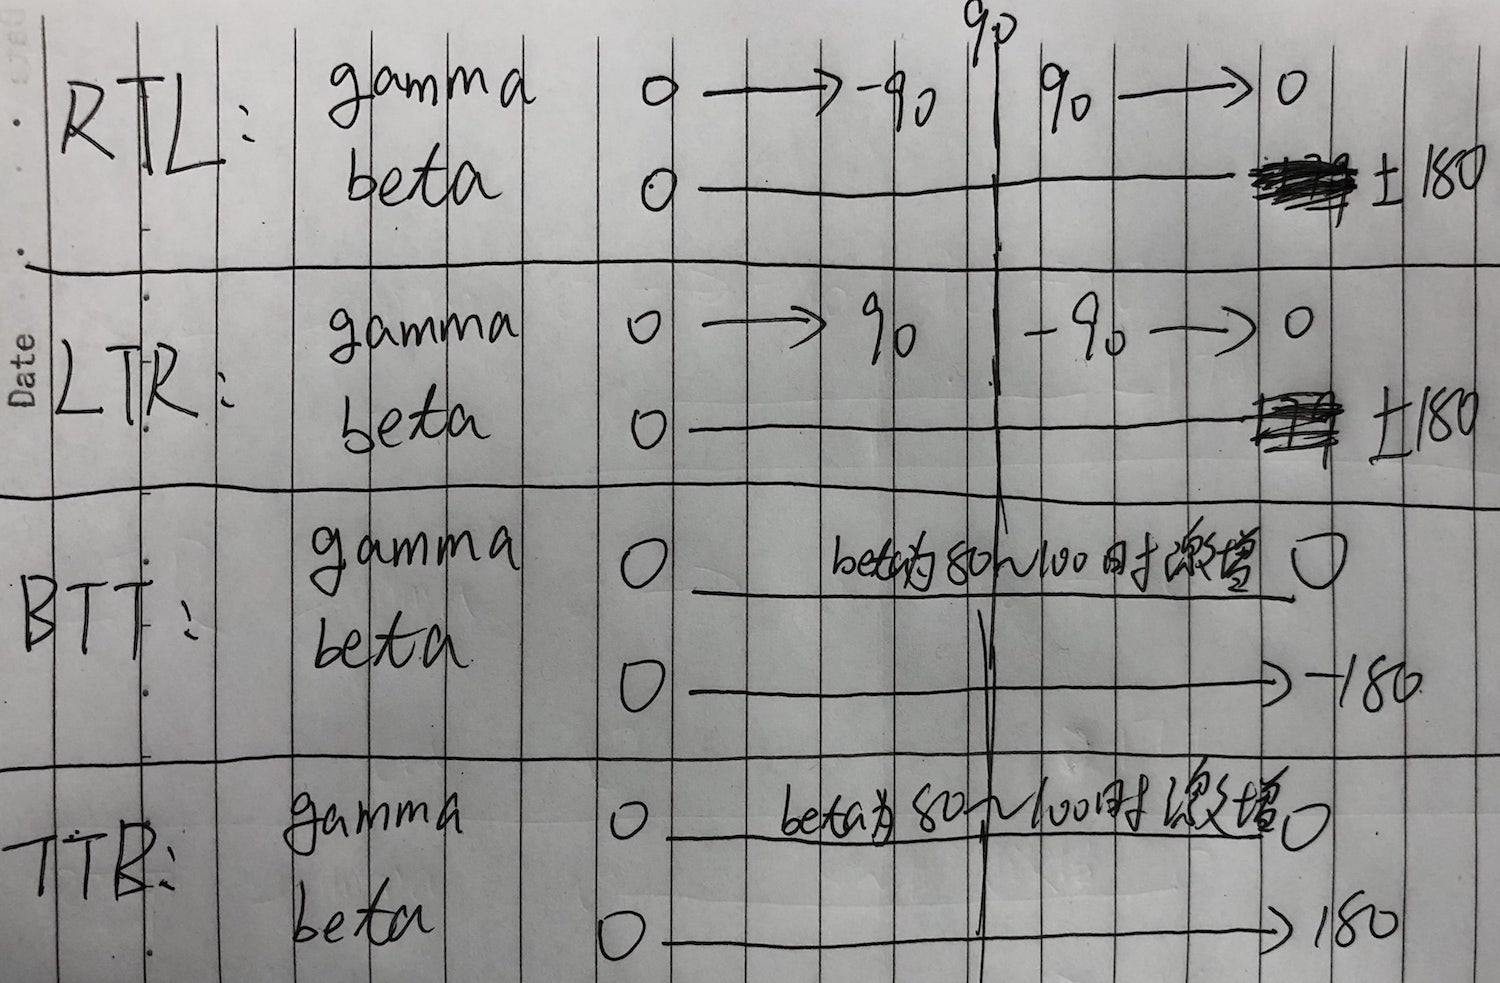 Date
90
RTL: gamma 0 → -90 90 → 0
beta 0 ±180
LTR: gamma 0 → 90 -90 → 0
beta 0 ±180
BTT: gamma 0 beta为80~100时激增 0
beta 0 → -180
TTB: gamma 0 beta为80~100时激增 0
beta 0 → 180